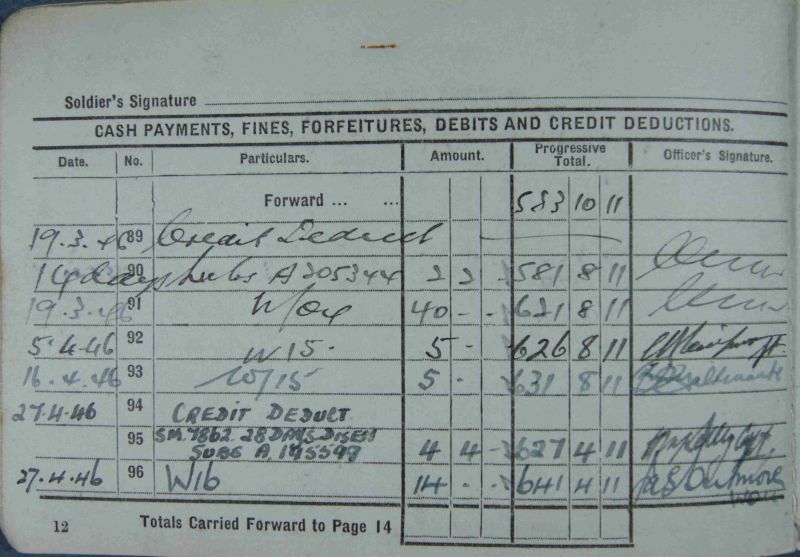 Soldier's Signature
CASH PAYMENTS, FINES, FORFEITURES, DEBITS AND CREDIT DEDUCTIONS.
Date. No. Particulars. Amount. Progressive Total. Officer's Signature.
Forward ... ... 583 10 11
19.3.46 89 Credit Deduct
14 days Subs A 205344 90 2 2 - 581 8 11
19.3.46 91 40 - - 621 8 11
5.4.46 92 W15. 5 - 626 8 11
16.4.46 93 W/15 5 - 631 8 11
27.4.46 94 CREDIT DEDUCT
95 SM.7862. 28 DAYS
SUBS A 4 4 - 627 4 11
27.4.46 96 W16 14 - - 641 4 11
12 Totals Carried Forward to Page 14